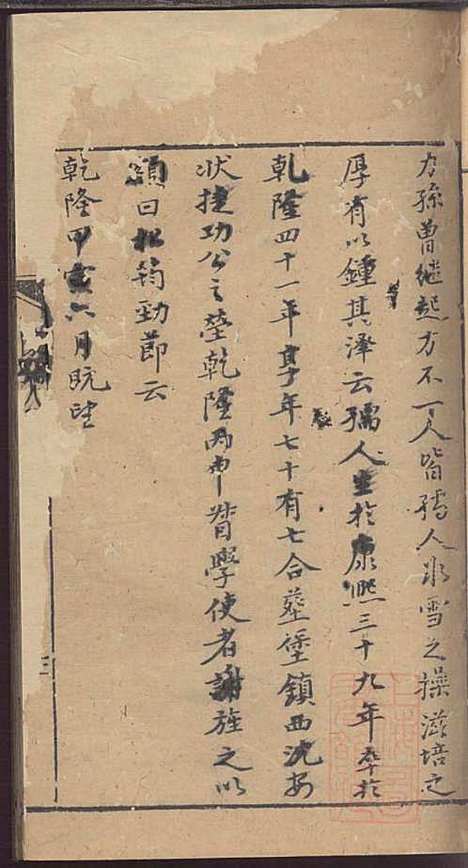 力孫曾繼起方不一人皆孺人氷雪之操滋培之
厚有以鍾其澤云孺人生於康熙三十九年卒於
乾隆四十一年享年七十有七合塟堡鎮西沈安
状捷功公之塋乾隆丙申督學使者謝旌之以
額曰松筠勁節云
乾隆甲寅六月既望
三